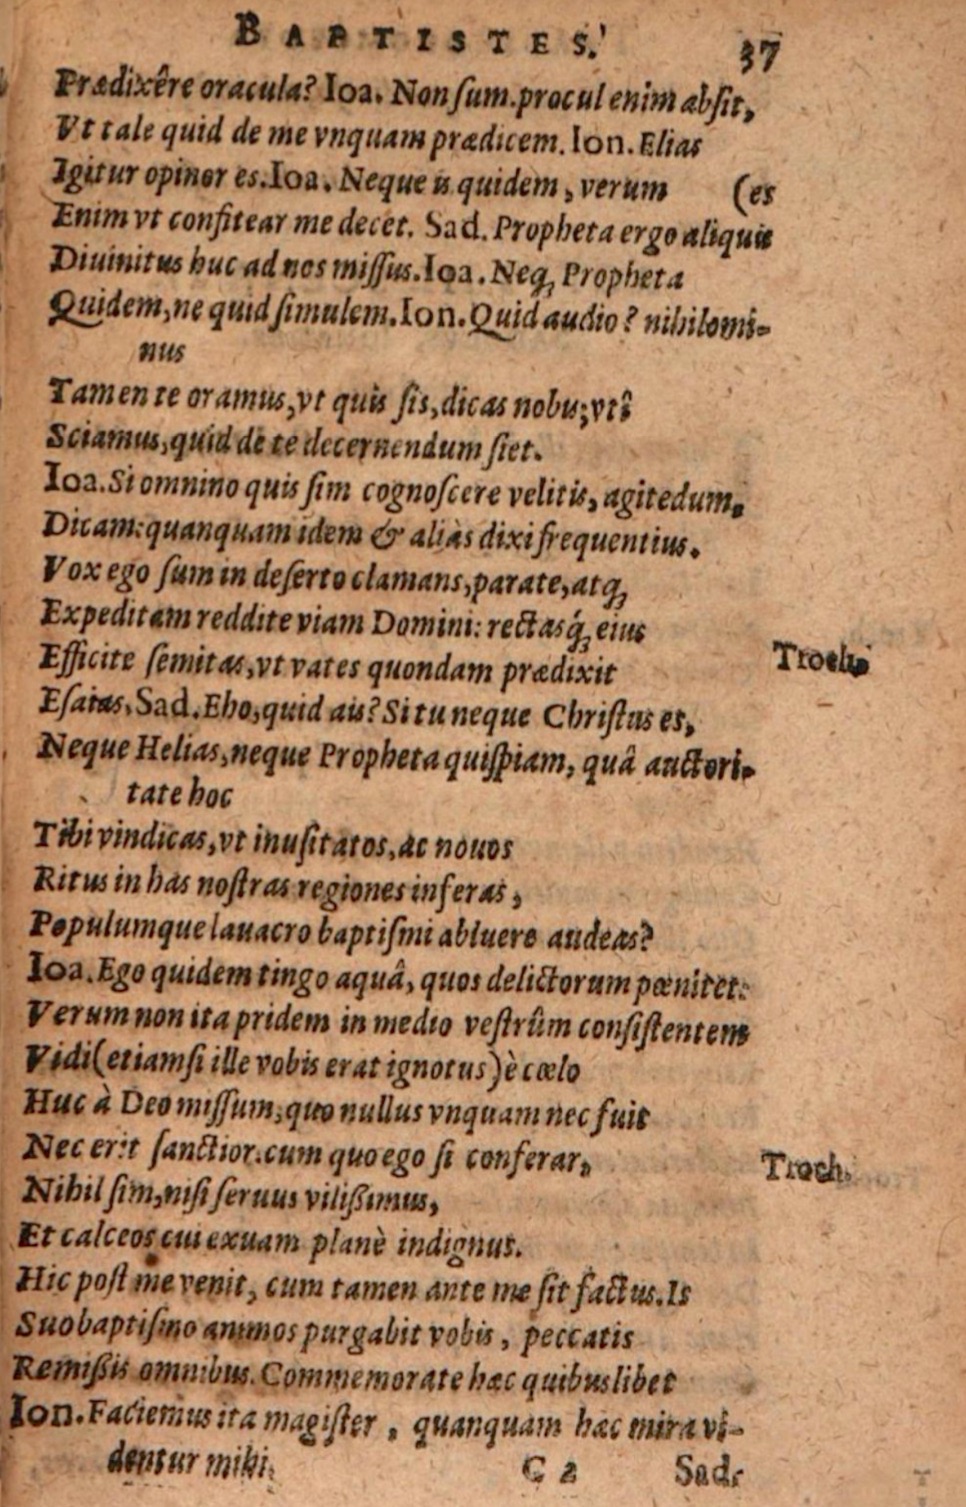 BAPTISTES. 37
Prædixêre oracula? Ioa. Non ſum. procul enim abſit,
Vt tale quid de me vnquam prædicem. Ion. Elias
Igitur opinor es. Ioa. Neque is quidem, verum (es
Enim vt confitear me decet. Sad. Propheta ergo aliquis
Diuinitus huc ad nos miſſus. Ioa. Neq; Propheta
Quidem, ne quid ſimulem. Ion. Quid audio? nihilomi-
nus
Tamen te oramus, vt quis ſis, dicas nobis; vti
Sciamus, quid de te decernendum ſiet.
Ioa. Si omnino quis ſim cognoſcere velitis, agitedum,
Dicam: quanquam idem & aliàs dixi frequentius.
Vox ego ſum in deſerto clamans, parate, atq;
Expeditam reddite viam Domini: rectasq́; eius
Efficite ſemitas, vt vates quondam prædixit
Troch.
Eſaias. Sad. Eho, quid ais? Si tu neque Chriſtus es,
Neque Helias, neque Propheta quiſpiam, quâ auctori-
tate hoc
Tibi vindicas, vt inuſitatos, ac nouos
Ritus in has noſtras regiones inferas,
Populumque lauacro baptiſmi abluere audeas?
Ioa. Ego quidem tingo aquâ, quos delictorum pœnitet:
Verum non ita pridem in medio veſtrûm conſiſtentem
Vidi (etiamſi ille vobis erat ignotus) è cœlo
Huc à Deo miſſum, quo nullus vnquam nec fuit
Nec erit ſanctior. cum quo ego ſi conferar,
Troch.
Nihil ſim, niſi ſeruus viliſſimus,
Et calceos cui exuam planè indignus.
Hic poſt me venit, cum tamen ante me ſit factus. Is
Suo baptiſmo animos purgabit vobis, peccatis
Remiſſis omnibus. Commemorate hæc quibuslibet
Ion. Faciemus ita magiſter, quanquam hæc mira vi-
dentur mihi.
C 2 Sad.